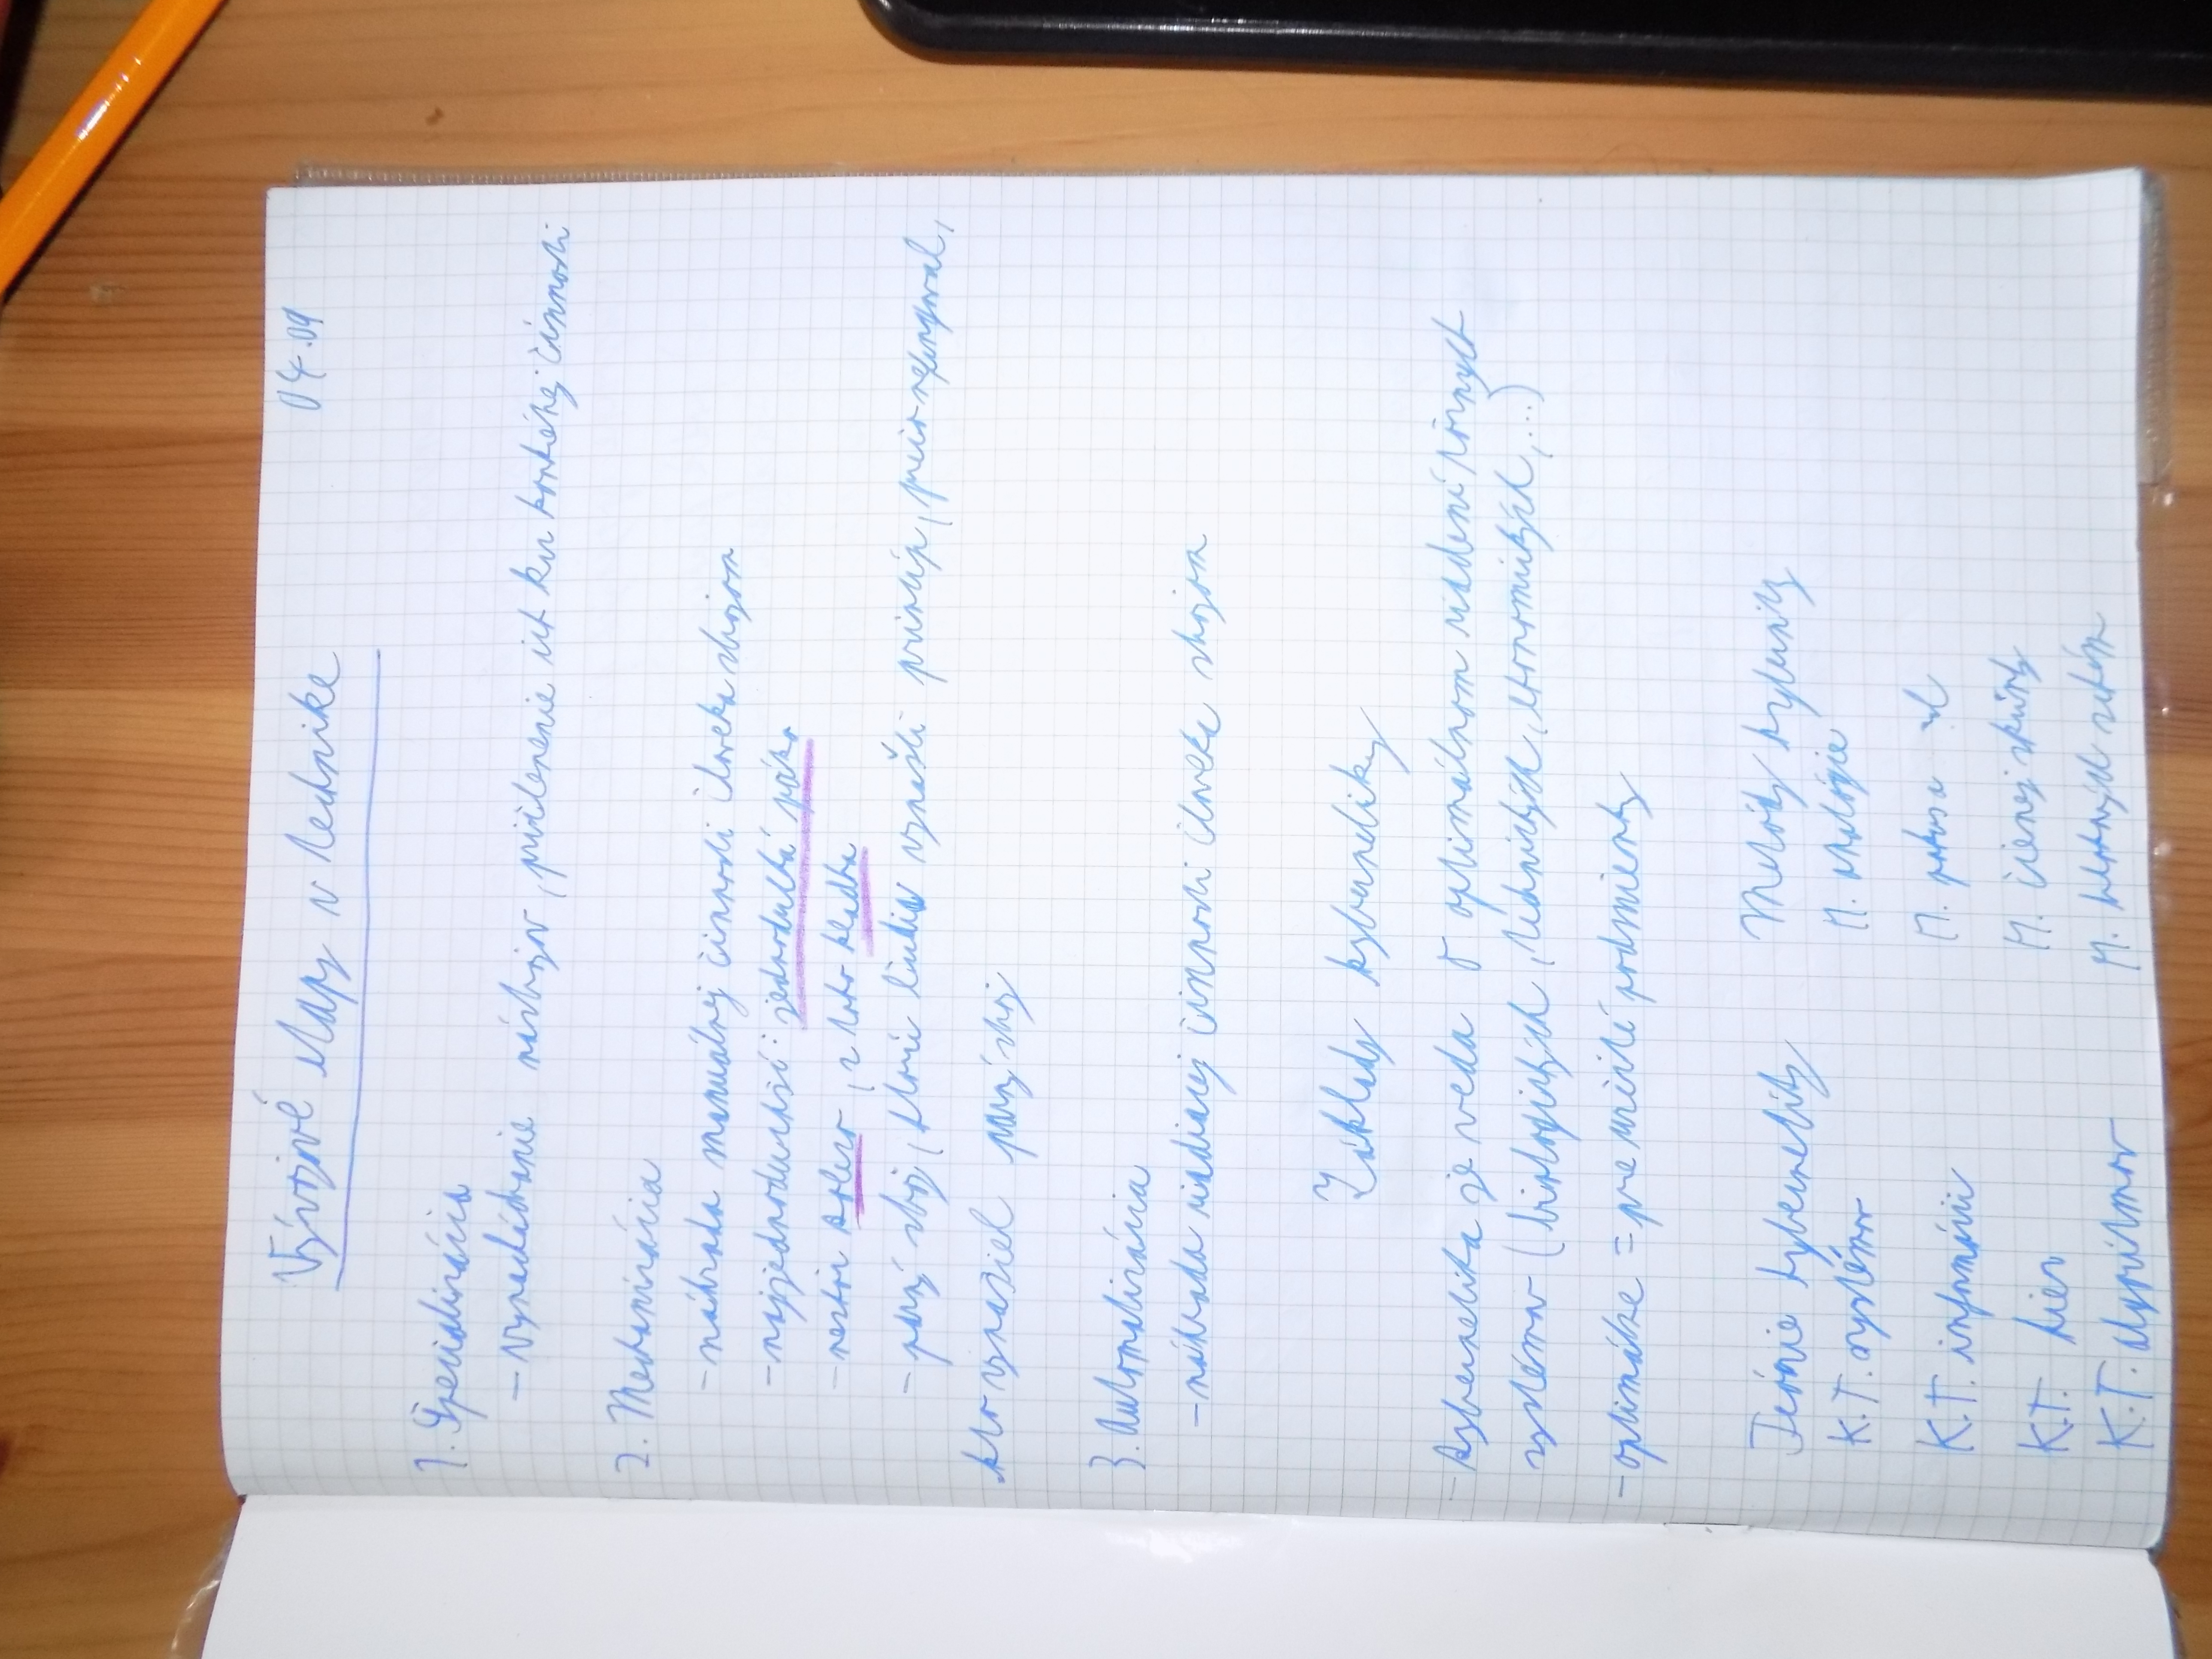 Vývojové etapy v technike 04.09
1. Špecializácia
- vynachádzanie nástrojov, pričlenenie ich ku konkrétnej činnosti
2. Mechanizácia
- náhrada manuálnej činnosti človeka strojom
- najjednoduchší: jednoduchá páka
- neskôr koleso, z toho kladka
- prvý stroj, ktorý ľudia vynašli princíp,
kto vynašiel prvý stroj
3. Automatizácia
- náhrada riadiacej činnosti človeka strojom
Základy kybernetiky
- Kybernetika je veda o optimálnom riadení rôznych
systémov (biologických, technických, ekonomických, ...)
- optimálne = pre určité podmienky
Teórie kybernetiky Metódy kybernetiky
K.T. systémov M. analógie
K.T. informácii M. pokus
K.T. hier M. čiernej skrinky
K.T. algoritmov M.